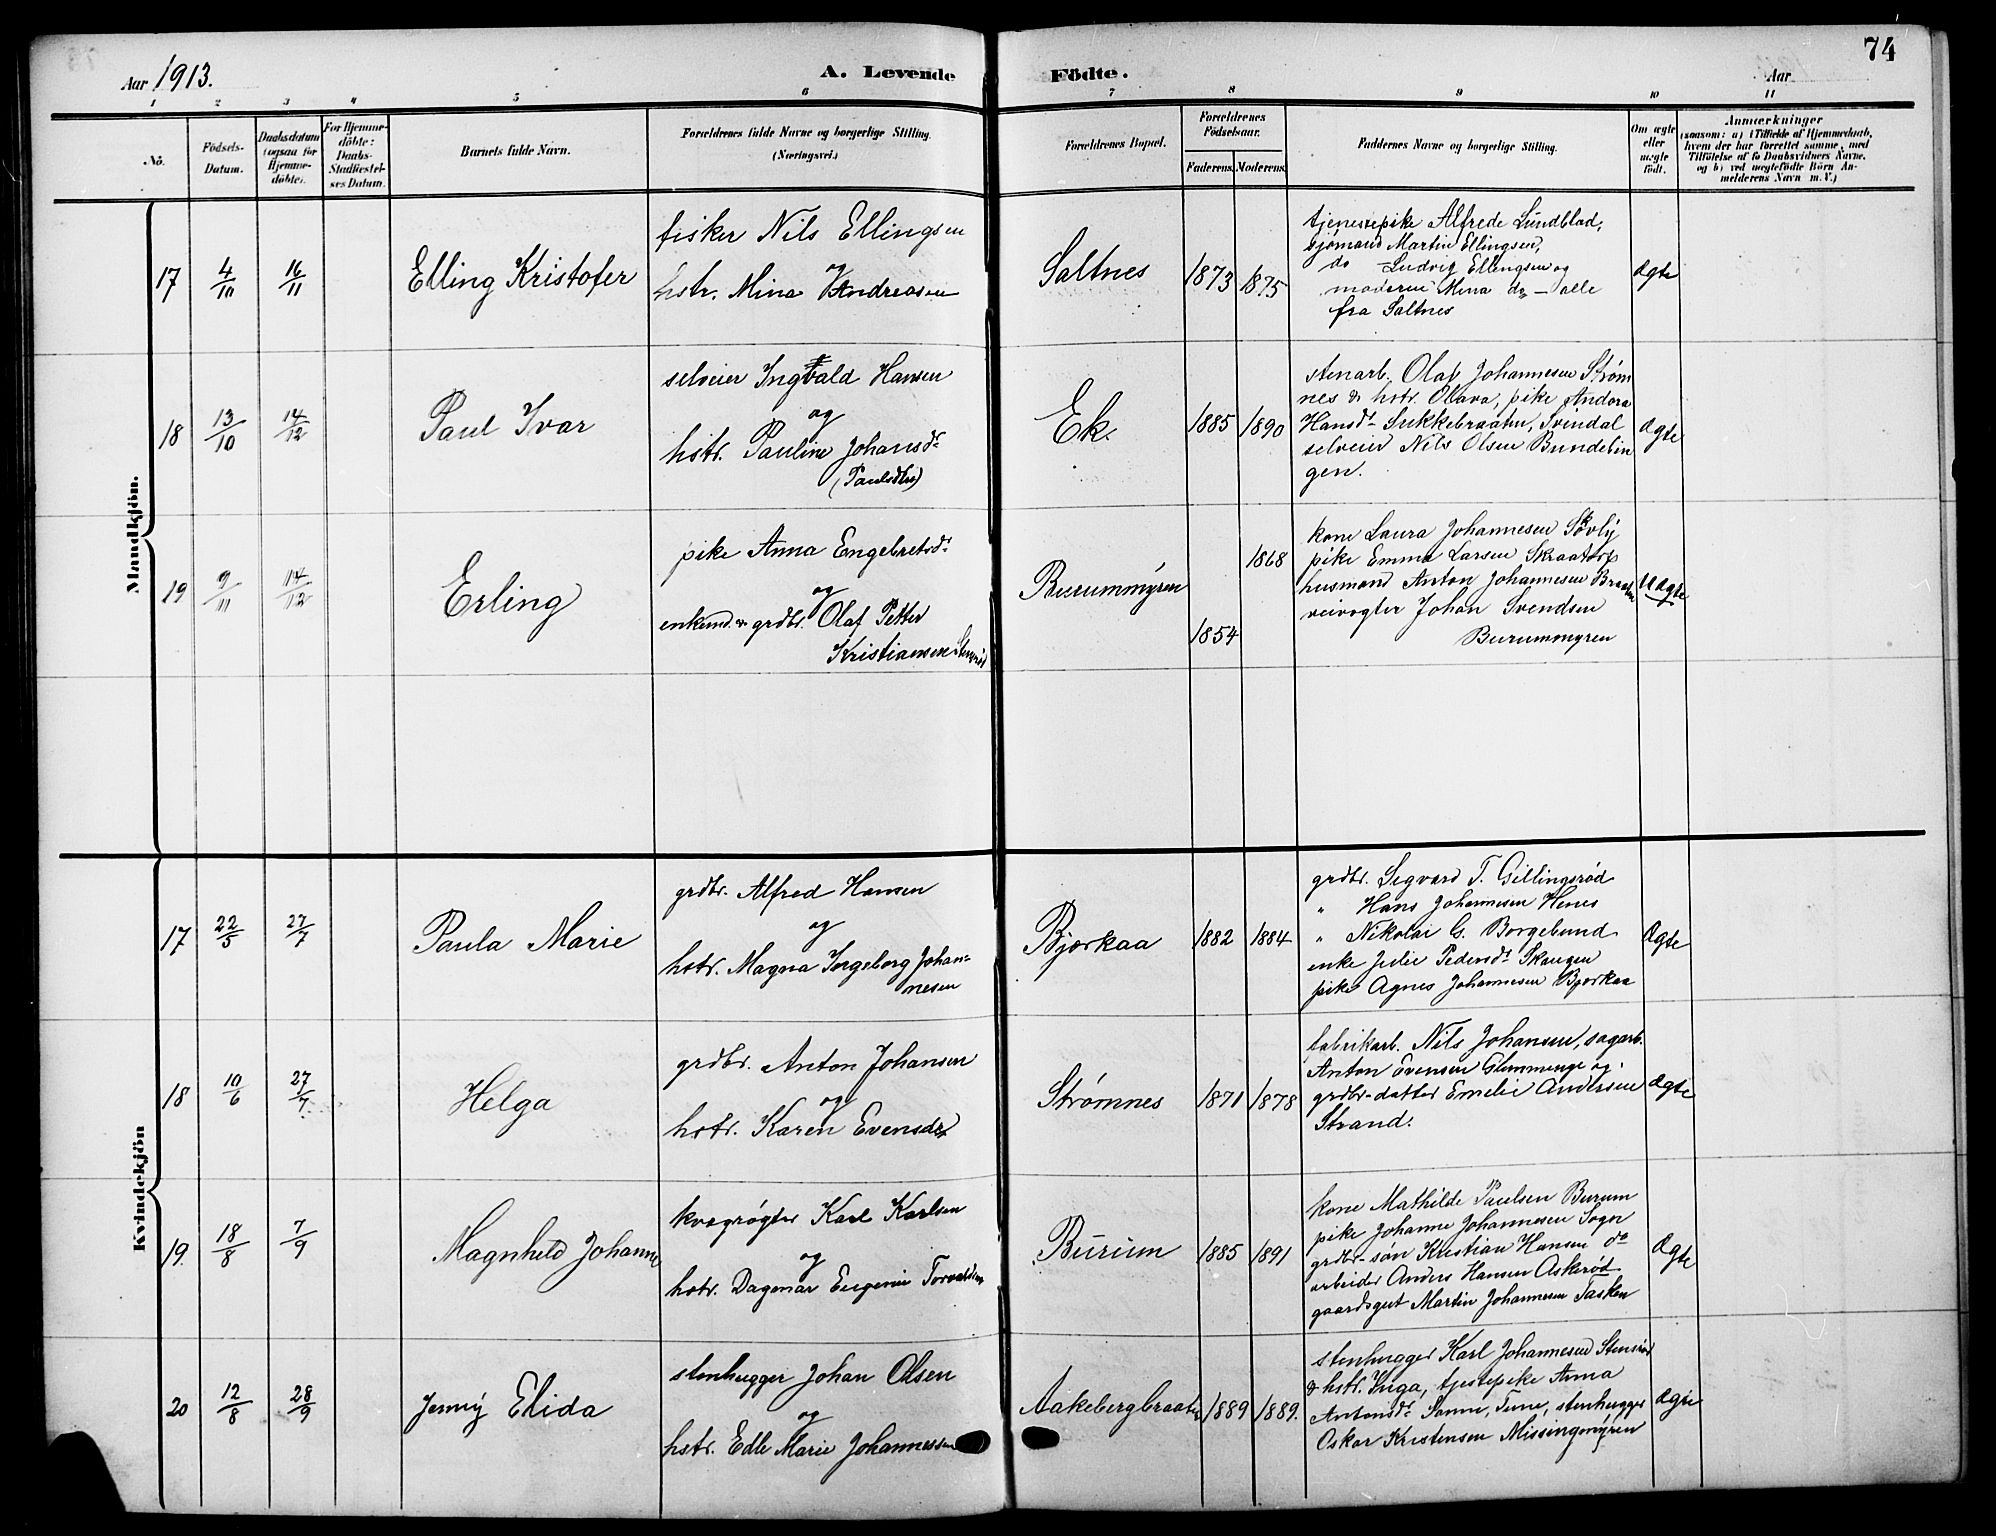 74
Aar 1913.
A. Levende Födte.
Aar
1 2 3 4 5 6 7 8 9 10 11
No.
Födsels-Datum.
Daabsdatum (ogsaa for Hjemme-döbte).
For Hjemme-döbte: Daabs-Stadfæstel-ses Datum.
Barnets fulde Navn.
Forældrenes fulde Navne og borgerlige Stilling.
(Næringsvei.)
Forældrenes Bopæl.
Forældrenes Födselsaar.
Faderens. Moderens.
Faddernes Navne og borgerlige Stilling.
Om ægte eller uægte födt.
Anmærkninger
(saasom: a) i Tilfælde af Hjemmedaab,
hvem der har forrettet samme, med
Tilföielse af to Daabsvidners Navne,
og b) ved uægtefödte Börn An-
melderens Navn m. V.)
Mandkjön.
17 4/10 16/11 Elling Kristofer
fisker Nils Ellingsen
og
hstr. Mina Andreasen
Saltnes 1873 1875
tjenestepike Alfrede Lundblad,
sjømand Martin Ellingsen,
do Ludvig Ellingsen og
moderen Mina do - alle
fra Saltnes
ægte
18 13/10 14/12 Paul Ivar
selveier Ingvald Hansen
og
hstr. Pauline Johansdr
(Paulsdtr)
Ek. 1885 1890
stenarb. Olaf Johannesen Strøm
nes & hstr. Olava, pike Andora
Hansdr Sukkebraaten, Svindal
selveier Nils Olsen Bundelin
gen.
ægte
19 9/11 14/12 Erling
pike Anna Engebretsdr
og
enkemd. & grdbr. Olaf Petter
Kristiansen
Burummyren 1854 1868
kone Laura Johannesen
pike Emma Larsen Skraatorp
husmand Anton Johannesen Braaten
veivogter Johan Svendsen
Burummyren
Uægte
Kvindekjön
17 22/5 27/7 Paula Marie
grdbr. Alfred Hansen
og
hstr. Magna Ingeborg Johan-
nesen
Bjørkaa 1882 1884
grdbr. Sigvard T. Gillingsrød
" Hans Johannesen Henes
" Nikolai G. Borgebund
enke Julie Pedersdr Skaugen
pike Agnes Johannesen Bjørkaa
Ægte
18 10/6 27/7. Helga
grdbr. Anton Johansen
og
hstr. Karen Evensdr
Strømnes 1871 1878
fabrikarb. Nils Johansen, sagarb.
Anton Evensen Glemmenge og
grdbr-datter Emelie Andersen
Strand.
ægte
19. 18/8 7/9 Magnhild Johanne
kvægrøgter Karl Karlsen
og
hstr. Dagmar Eugenie Torvaldsen
Burum 1885 1891
kone Mathilde Paulsen Burum
pike Johanne Johannesen Sogn
grdbr-søn Kristian Hansen do
arbeider Anders Hansen Askerød
gaardsgut Martin Johannesen Tasken
Ægte
20 12/8 28/9 Jenny Elida
stenhugger Johan Olsen
og
hstr. Edle Marie Johannessen
Aakebergbraaten 1889 1889.
stenhugger Karl Johannesen Stensrød
& hstr. Inga, tjstepike Anna
Antonsdr Sanne, Tune, stenhugger
Oskar Kristensen Missingmyren
Ægte